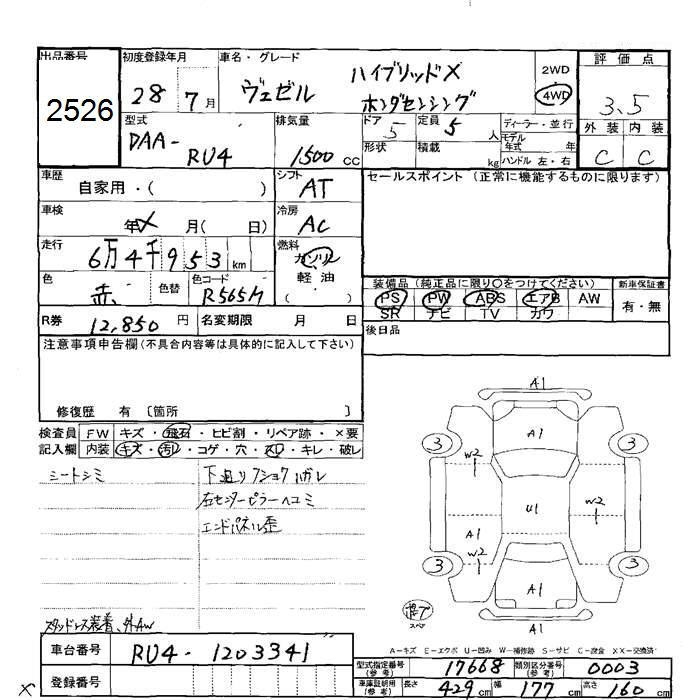 出品番号 初度登録年月 車名・グレード 評価点
2526 28 7月 ヴェゼル ハイブリッドX ホンダセンシング 2WD 4WD 3.5
型式 排気量 ドア 5 定員 5人 ディーラー・並行 外装 内装
DAA- RU4 1500 cc 形状 積載 kg モデル年式 年 C C
ハンドル 左・右
車歴 自家用・( ) シフト AT セールスポイント (正常に機能するものに限ります)
車検 年 月( 日) 冷房 AC
走行 6万4千953km 燃料 ガソリン
軽油
( )
色 赤 色替 色コード R565M 装備品(純正品に限り〇をつけてください) 新車保証書
PS PW ABS エアB AW 有・無
SR ナビ TV カワ
R券 12,850円 名変期限 月 日 後日品
注意事項申告欄(不具合内容等は具体的に記入して下さい)
修復歴 有 〔箇所 〕
検査員 FW キズ・飛石・ヒビ割・リペア跡・×要
記入欄 内装 キズ・汚レ・コゲ・穴・スレ・キレ・破レ
シートシミ 下廻り
右センターピラーヘコミ
エンドパネル歪
スタッドレス装着、外AW
A1
A1
3 3
W2
U1 W2
A1
W2
3 3
A1
A1
A-キズ E-エクボ U-凹み W-補修跡 S-サビ C-腐食 XX-交換済
車台番号 RU4-1203341
登録番号
型式指定番号(参考) 17668 類別区分番号(参考) 0003
車庫証明用(参考) 長さ 429cm 幅 177cm 高さ 160cm
×